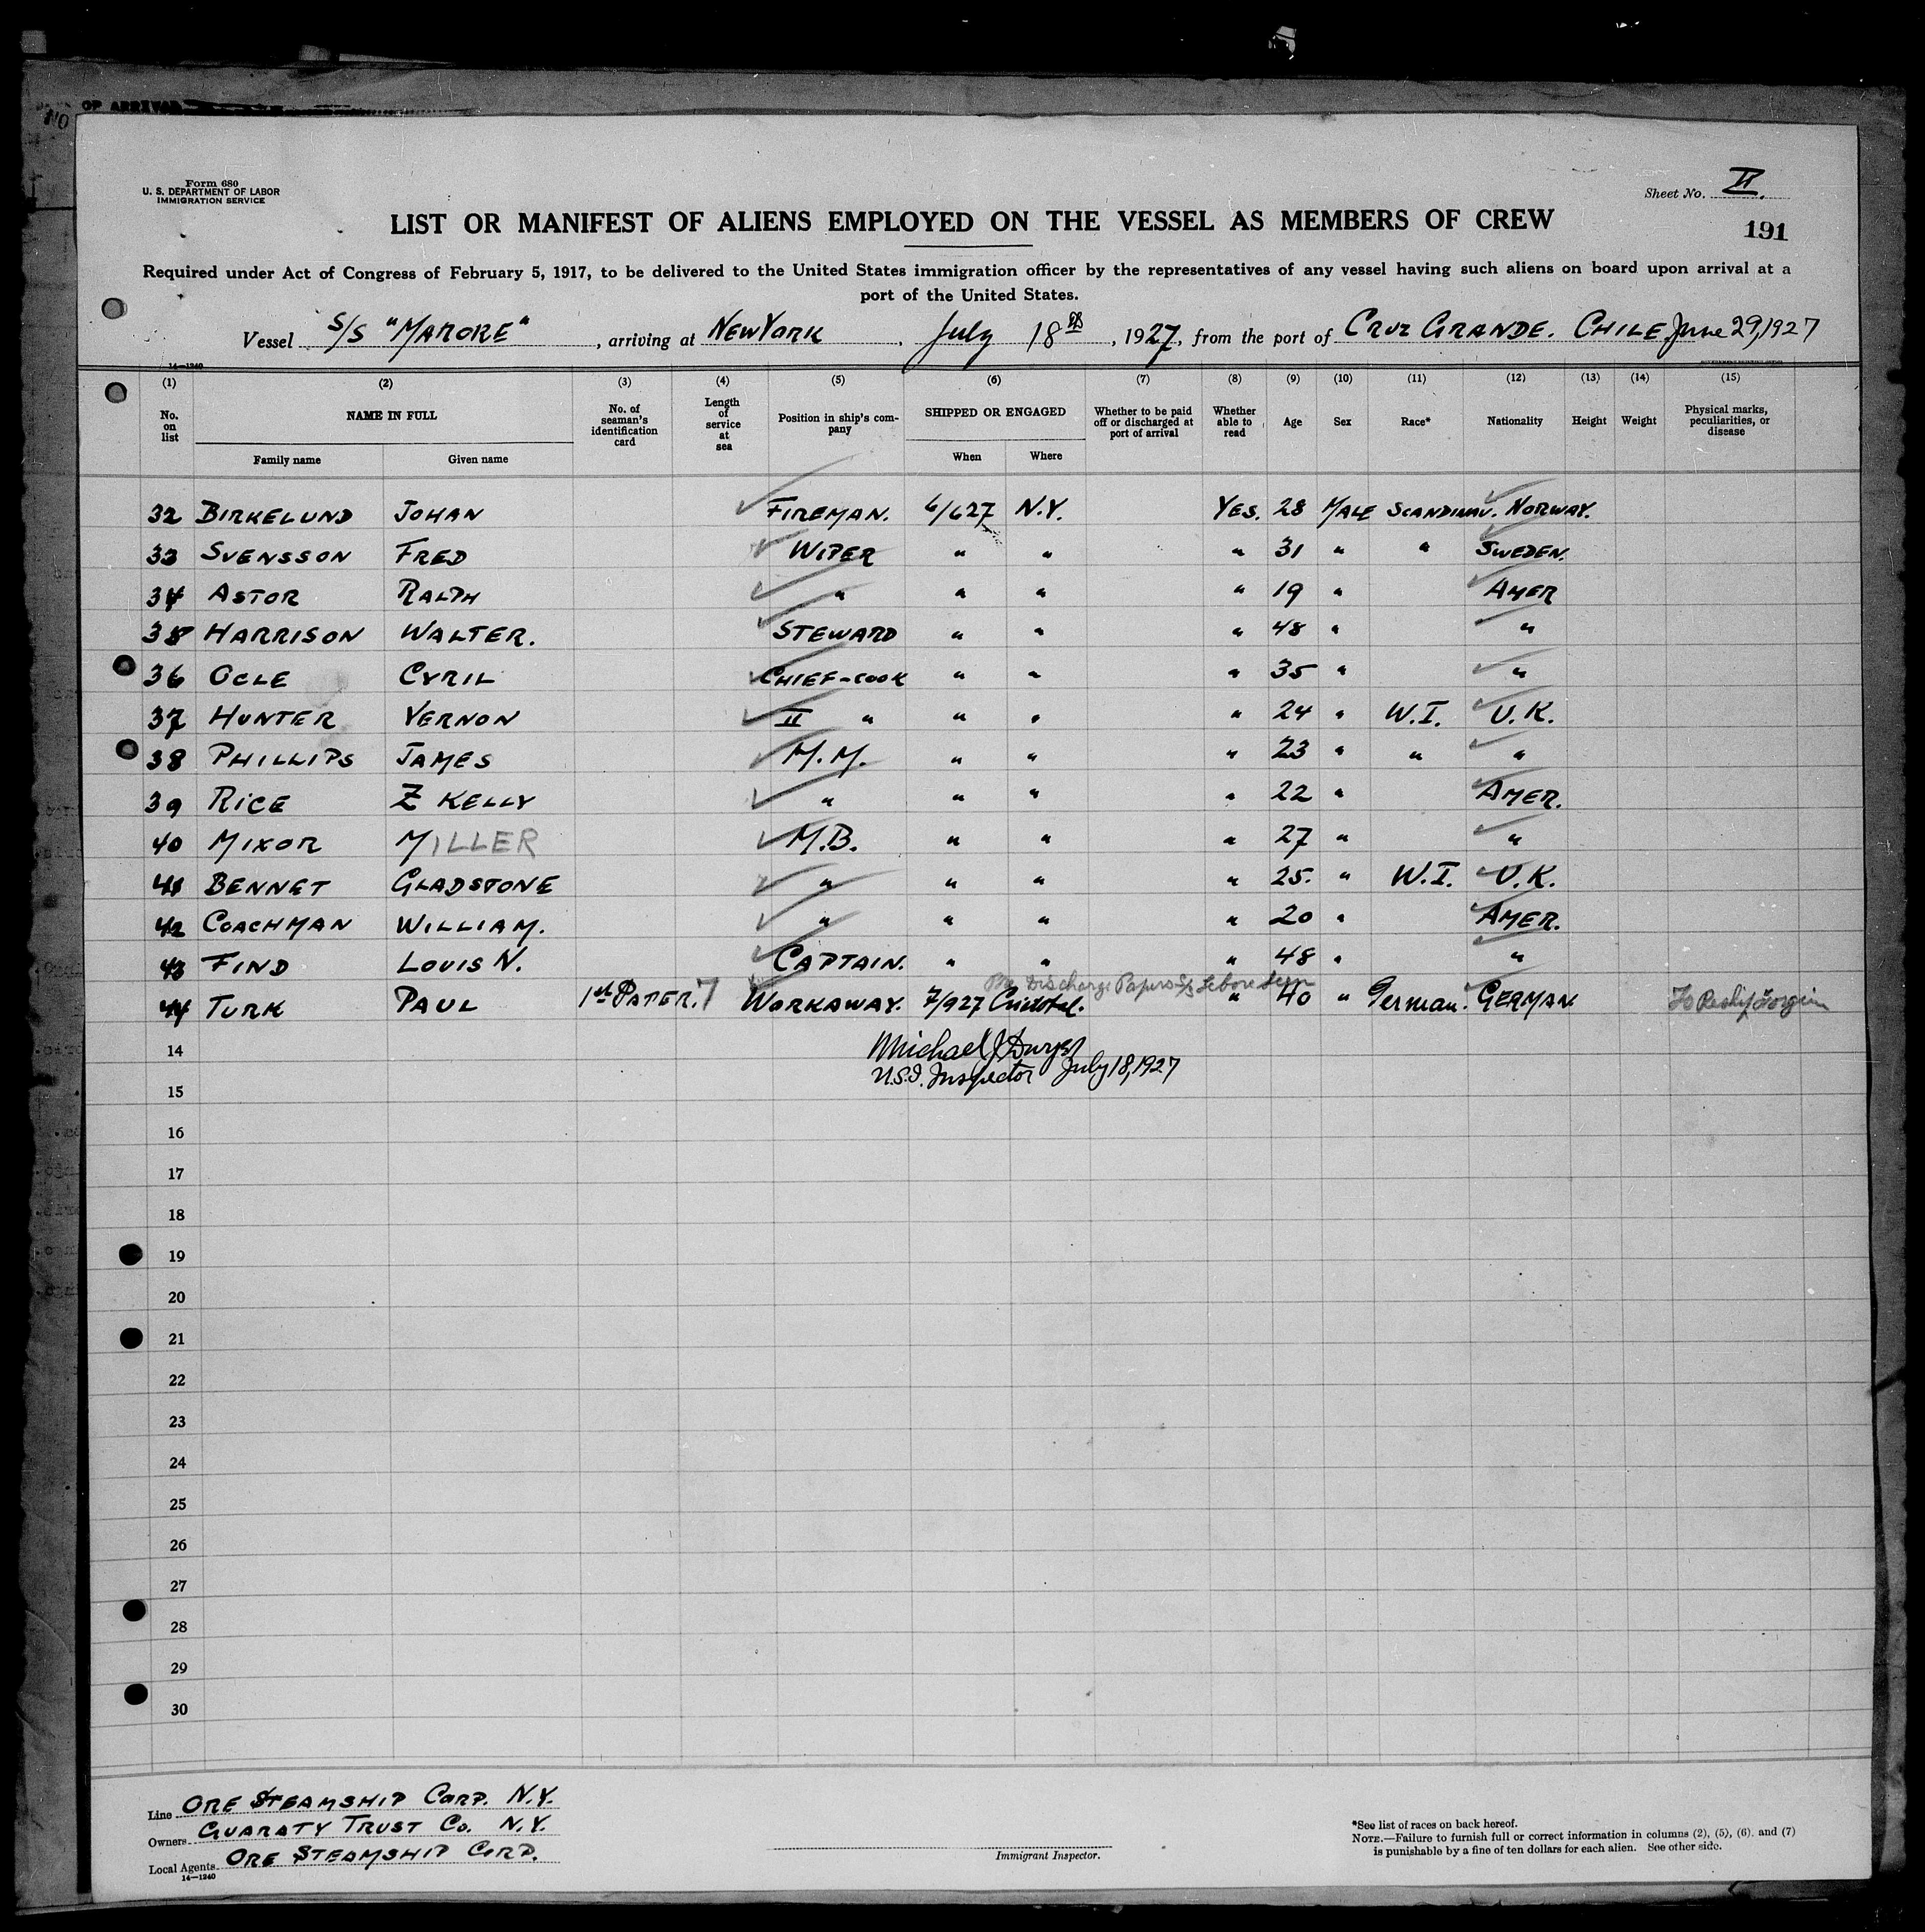 OF ARRIVAL
NO
Form 680
U. S. DEPARTMENT OF LABOR
IMMIGRATION SERVICE
Sheet No. II.
LIST OR MANIFEST OF ALIENS EMPLOYED ON THE VESSEL AS MEMBERS OF CREW
191
Required under Act of Congress of February 5, 1917, to be delivered to the United States immigration officer by the representatives of any vessel having such aliens on board upon arrival at a
port of the United States.
Vessel S/S "MARORE", arriving at NEW YORK, July 18th, 1927, from the port of CRUZ GRANDE. CHILE June 29, 1927
14—1240
(1) (2) (3) (4) (5) (6) (7) (8) (9) (10) (11) (12) (13) (14) (15)
No. on list NAME IN FULL No. of seaman's identification card Length of service at sea Position in ship's company SHIPPED OR ENGAGED Whether to be paid off or discharged at port of arrival Whether able to read Age Sex Race* Nationality Height Weight Physical marks, peculiarities, or disease
Family name Given name When Where
32 BIRKELUND JOHAN FIREMAN. 6/627 N.Y. YES. 28 MALE SCANDINAV. NORWAY.
33 SVENSSON FRED WIPER " " " 31 " " SWEDEN.
34 ASTOR RALPH " " " " 19 " AMER
38 HARRISON WALTER. STEWARD " " " 48 " "
36 OCLE CYRIL CHIEF-COOK " " " 35 " "
37 HUNTER VERNON II " " " " 24 " W.I. U.K.
38 PHILLIPS JAMES M.M. " " " 23 " " "
39 RICE Z KELLY " " " " 22 " AMER.
40 MIXOR MILLER M.B. " " " 27 " "
41 BENNET GLADSTONE " " " " 25. " W.I. U.K.
42 COACHMAN WILLIAM. " " " " 20 " AMER.
43 FIND LOUIS N. CAPTAIN. " " " 48 " "
Discharge Papers S/S Lebore seen
44 TURK PAUL 1st PAPER. 7 WORKAWAY. 7/927 Cristobal. " 40 " German. GERMAN To Reship foreign
14 Michael J Dwyer
U.S.I. Inspector July 18, 1927
15
16
17
18
19
20
21
22
23
24
25
26
27
28
29
30
Line ORE STEAMSHIP CORP. N.Y.
Owners GUARATY TRUST CO. N.Y.
Local Agents ORE STEAMSHIP CORP.
14—1240
Immigrant Inspector.
*See list of races on back hereof.
NOTE.—Failure to furnish full or correct information in columns (2), (5), (6), and (7)
is punishable by a fine of ten dollars for each alien. See other side.